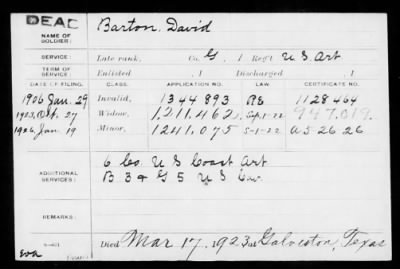 DEAD
Barton, David
NAME OF
SOLDIER:
SERVICE: Late rank, Co. G, 1 Reg't U S Art
TERM OF
SERVICE: Enlisted , 1 Discharged , 1
DATE OF FILING. CLASS. APPLICATION NO. LAW. CERTIFICATE NO.
1906 Jan. 29 Invalid, 1344893 1128464
1923, Oct. 27 Widow, 1211462 Sp1-22 947,019.
1926, Jan. 19 Minor, 1241,075 5-1-22 a5 26 26
ADDITIONAL
SERVICES:
6 Co. U S Coast Art
B 3 & G 5 U S Cav.
REMARKS:
Died Mar 17, 1923 at Galveston, Texas
Eva